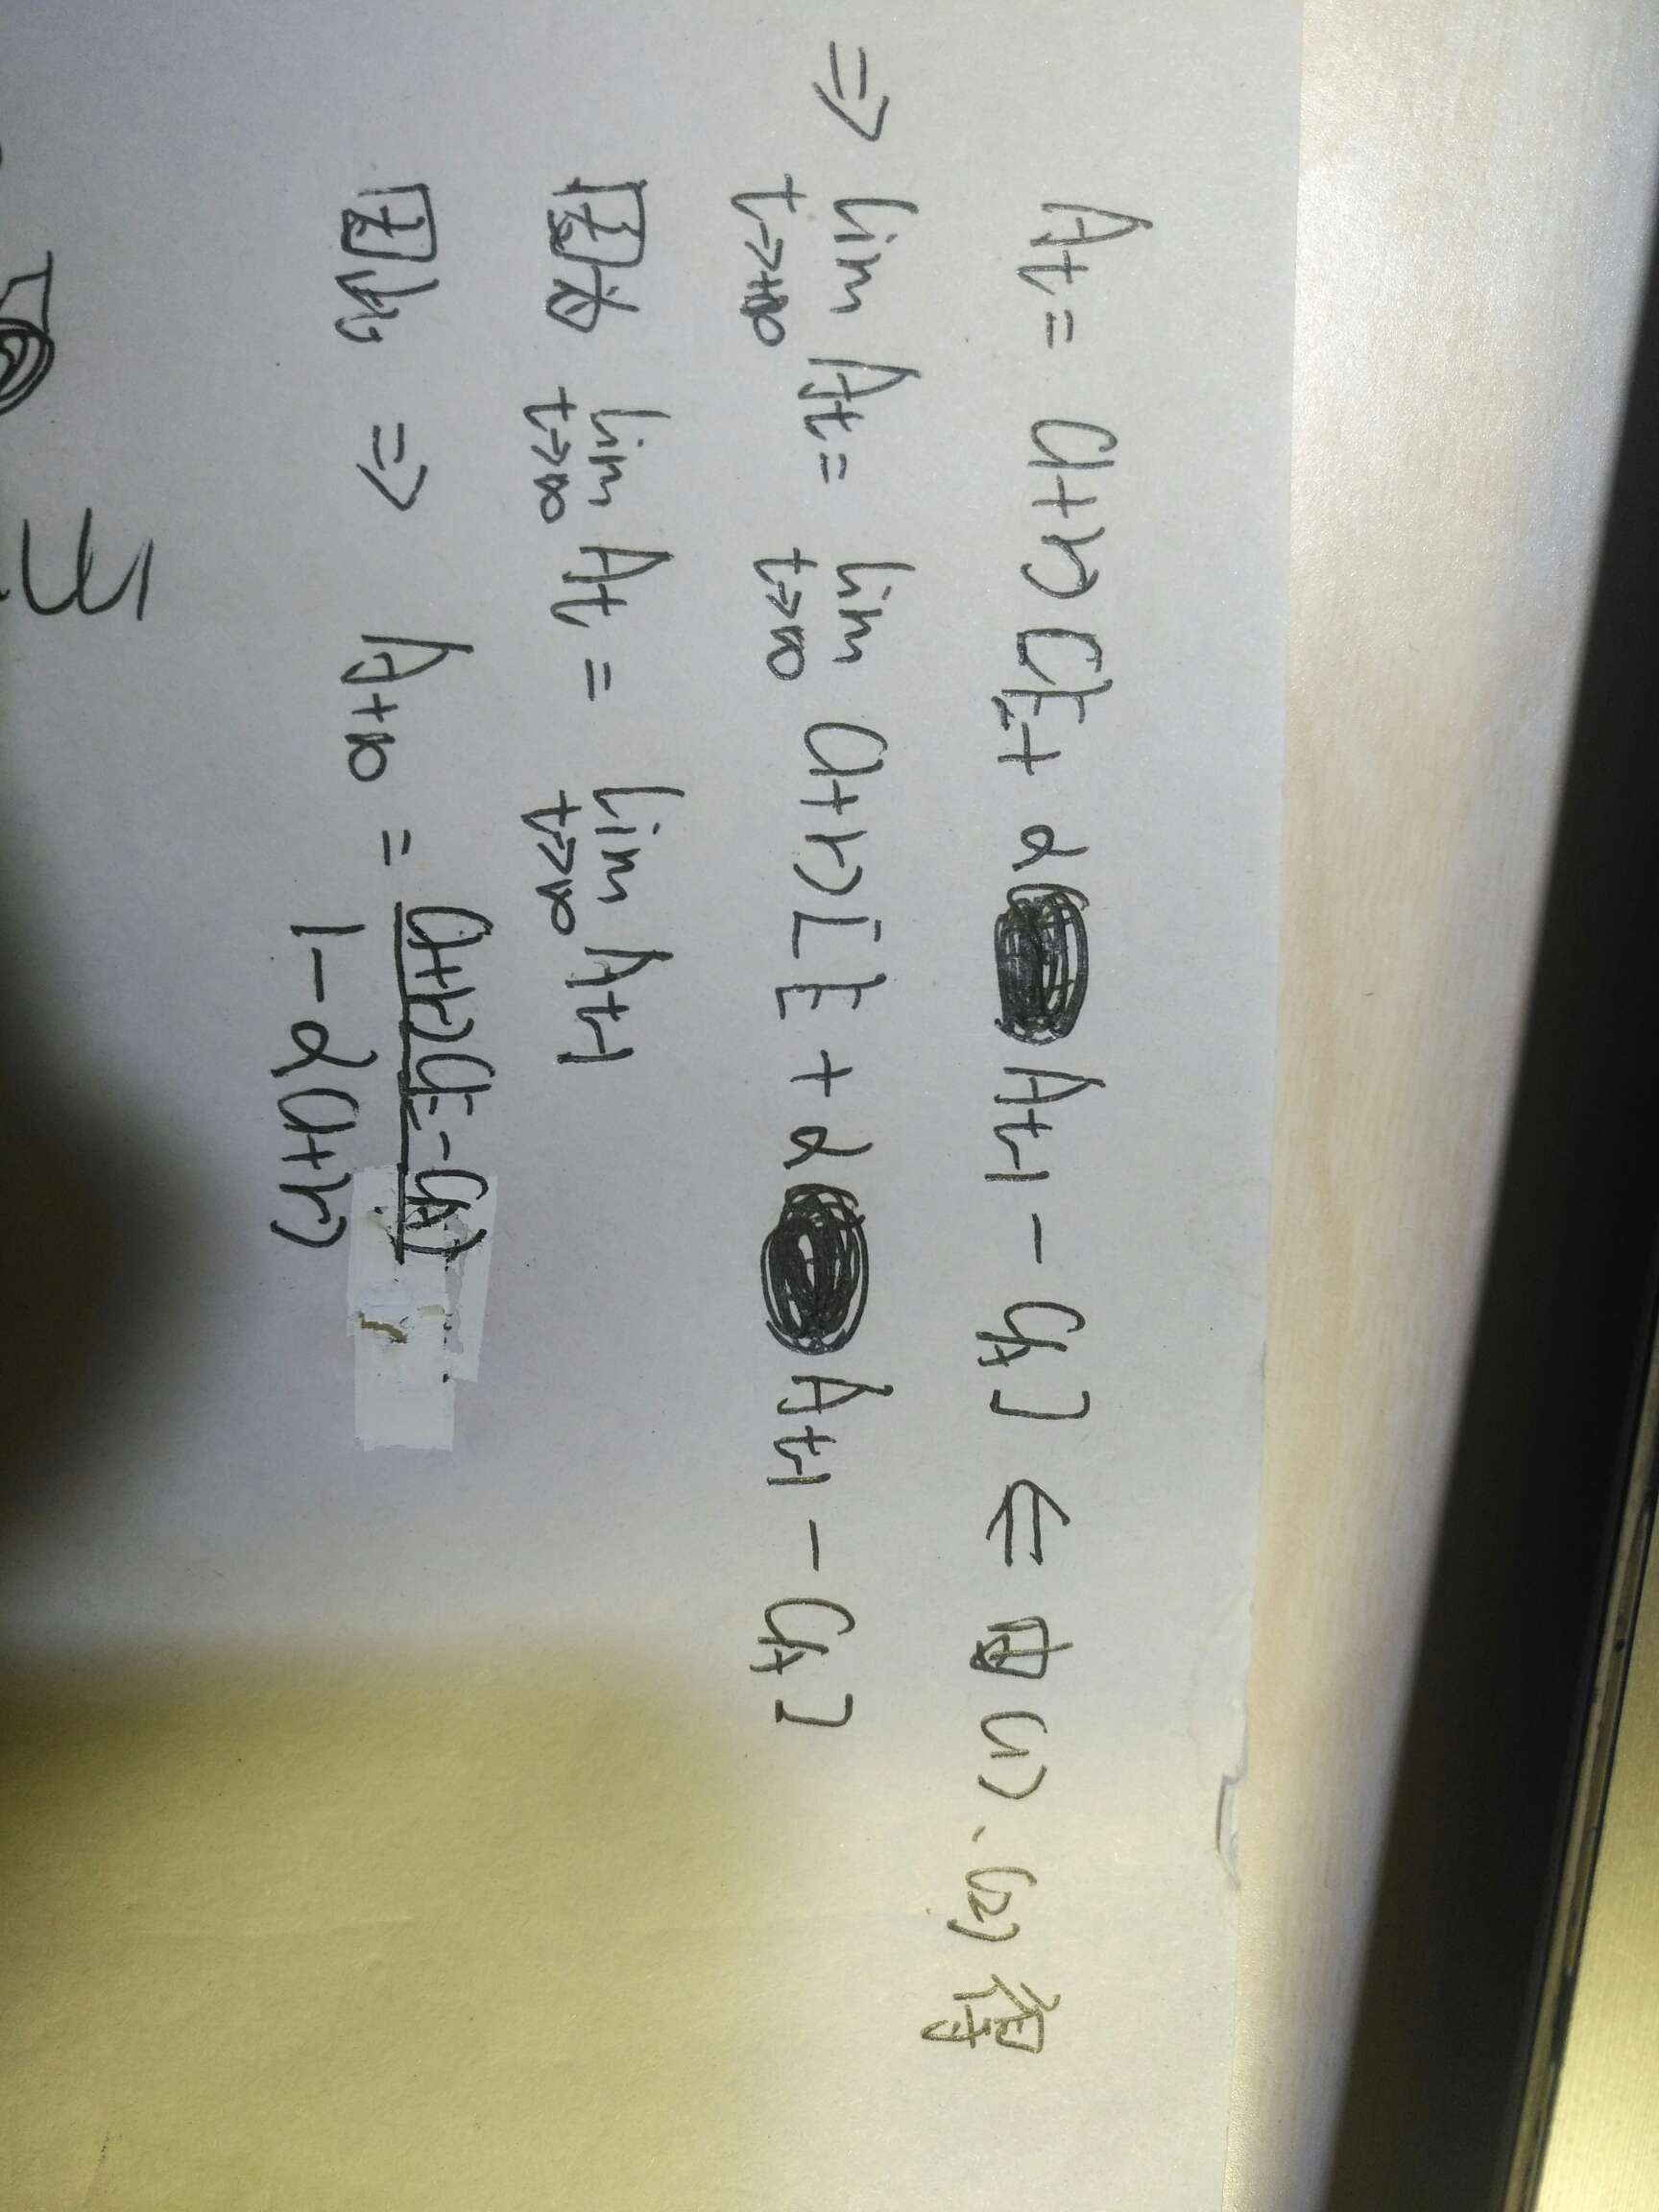 At = (1+r)[Et + α At-1 - Ct] ⇐ 由(1)、(2)得
⇒ lim t->+∞ At = lim t->∞ (1+r)[Et + α At-1 - Ct]
因为 lim t->∞ At = lim t->∞ At-1
因此 ⇒ A+∞ = (1+r)(Et - Ct) / 1 - α(1+r)